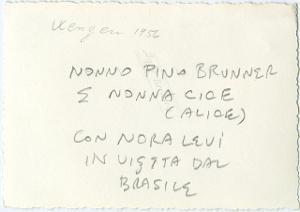 Wengen 1956
NONNO PINO BRUNNER
E NONNA CICE
(ALICE)
CON NORA LEVI
IN VISITA DAL
BRASILE